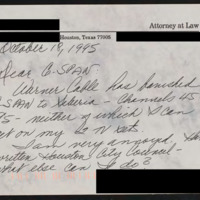 Attorney at Law
Houston, Texas 77005
October 18, 1995
Dear C-SPAN
Warner Cable has banished
C-SPAN to Siberia - Channels 45
95 - neither of which I can
get on my TV sets.
I am very annoyed, have
written Houston City Council -
what else can I do?